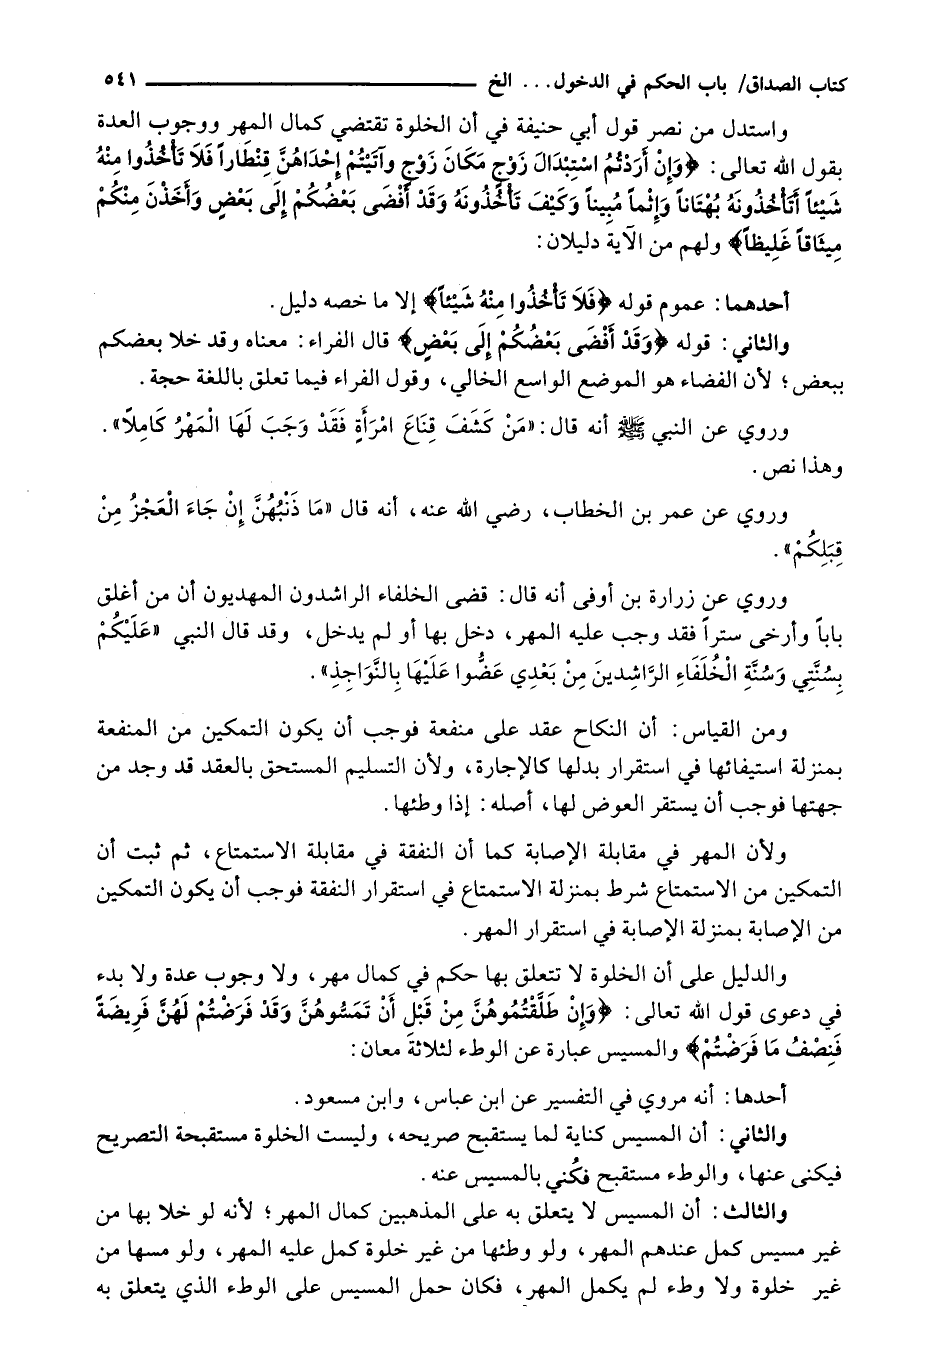 كتاب الصداق/ باب الحكم في الدخول... الخ ٥٤١
واستدل من نصر قول أبي حنيفة في أن الخلوة تقتضي كمال المهر ووجوب العدة
بقول الله تعالى: ﴿وَإِنْ أَرَدْتُمُ اسْتِبْدَالَ زَوْجٍ مَكَانَ زَوْجٍ وآتَيْتُمْ إِحْدَاهُنَّ قِنْطَاراً فَلَا تَأْخُذُوا مِنْهُ
شَيْئاً أَتَأْخُذُونَهُ بُهْتَاناً وَإِثْماً مُبِيناً وَكَيْفَ تَأْخُذُونَهُ وَقَدْ أَفْضَى بَعْضُكُمْ إِلَى بَعْضٍ وَأَخَذْنَ مِنْكُمْ
مِيثَاقاً غَلِيظاً﴾ ولهم من الآية دليلان:
أحدهما: عموم قوله ﴿فَلَا تَأْخُذُوا مِنْهُ شَيْئاً﴾ إلا ما خصه دليل.
والثاني: قوله ﴿وَقَدْ أَفْضَى بَعْضُكُمْ إِلَى بَعْضٍ﴾ قال الفراء: معناه وقد خلا بعضكم
ببعض؛ لأن الفضاء هو الموضع الواسع الخالي، وقول الفراء فيما تعلق باللغة حجة.
وروي عن النبي ﷺ أنه قال: «مَنْ كَشَفَ قِنَاعَ امْرَأَةٍ فَقَدْ وَجَبَ لَهَا الْمَهْرُ كَامِلاً».
وهذا نص.
وروي عن عمر بن الخطاب، رضي الله عنه، أنه قال «مَا ذَنْبُهُنَّ إِنْ جَاءَ الْعَجْزُ مِنْ
قِبَلِكُمْ».
وروي عن زرارة بن أوفى أنه قال: قضى الخلفاء الراشدون المهديون أن من أغلق
باباً وأرخى ستراً فقد وجب عليه المهر، دخل بها أو لم يدخل، وقد قال النبي «عَلَيْكُمْ
بِسُنَّتِي وَسُنَّةِ الْخُلَفَاءِ الرَّاشِدِينَ مِنْ بَعْدِي عَضُّوا عَلَيْهَا بِالنَّوَاجِذِ».
ومن القياس: أن النكاح عقد على منفعة فوجب أن يكون التمكين من المنفعة
بمنزلة استيفائها في استقرار بدلها كالإجارة، ولأن التسليم المستحق بالعقد قد وجد من
جهتها فوجب أن يستقر العوض لها، أصله: إذا وطئها.
ولأن المهر في مقابلة الإصابة كما أن النفقة في مقابلة الاستمتاع، ثم ثبت أن
التمكين من الاستمتاع شرط بمنزلة الاستمتاع في استقرار النفقة فوجب أن يكون التمكين
من الإصابة بمنزلة الإصابة في استقرار المهر.
والدليل على أن الخلوة لا تتعلق بها حكم في كمال مهر، ولا وجوب عدة ولا بدء
في دعوى قول الله تعالى: ﴿وَإِنْ طَلَّقْتُمُوهُنَّ مِنْ قَبْلِ أَنْ تَمَسُّوهُنَّ وَقَدْ فَرَضْتُمْ لَهُنَّ فَرِيضَةً
فَنِصْفُ مَا فَرَضْتُمْ﴾ والمسيس عبارة عن الوطء لثلاثة معان:
أحدها: أنه مروي في التفسير عن ابن عباس، وابن مسعود.
والثاني: أن المسيس كناية لما يستقبح صريحه، وليست الخلوة مستقبحة التصريح
فيكنى عنها، والوطء مستقبح فكُني بالمسيس عنه.
والثالث: أن المسيس لا يتعلق به على المذهبين كمال المهر؛ لأنه لو خلا بها من
غير مسيس كمل عندهم المهر، ولو وطئها من غير خلوة كمل عليه المهر، ولو مسها من
غير خلوة ولا وطء لم يكمل المهر، فكان حمل المسيس على الوطء الذي يتعلق به